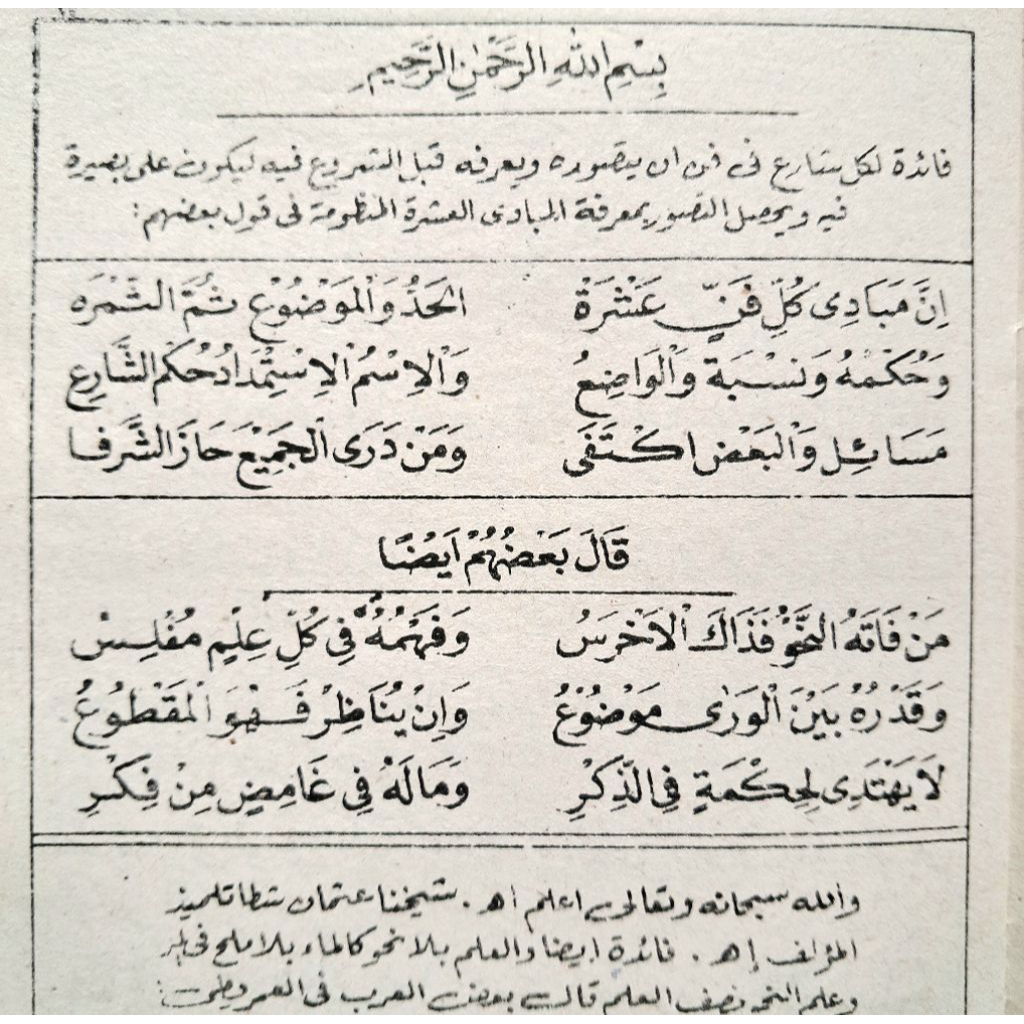 بِسْمِ اللهِ الرَّحْمٰنِ الرَّحِيْمِ
فائدة لكل شارع فى فن ان يتصوره ويعرفه قبل الشروع فيه ليكون على بصيرة
فيه ويحصل التصور بمعرفة المبادى العشرة المنظومة فى قول بعضهم:
اِنَّ مَبَادِى كُلِّ فَنٍّ عَشْرَةْ الْحَدُّ وَالْمَوْضُوْعُ ثُمَّ الثَّمْرَه
وَحُكْمُهُ وَنَسْبَةٌ وَالْوَاضِعُ وَالْاِسْمُ الْاِسْتِمْدَادُ حُكْمُ الشَّارِعِ
مَسَائِلٌ وَالْبَعْضُ اكْتَفَى وَمَنْ دَرَى الْجَمِيْعَ حَازَ الشَّرَفَا
قَالَ بَعْضُهُمْ اَيْضًا
مَنْ فَاتَهُ النَّحْوُ فَذَاكَ الْاَخْرَسُ وَفَهْمُهُ فِى كُلِّ عِلْمٍ مُفْلِسْ
وَقَدْرُهُ بَيْنَ الْوَرٰى مَوْضُوْعُ وَاِنْ يُنَاظِرْ فَهْوَ الْمَقْطُوْعُ
لَا يَهْتَدِى لِحِكْمَةٍ فِى الذِّكْرِ وَمَالَهُ فِى غَامِضٍ مِنْ فِكْرِ
والله سبحانه وتعالى اعلم اهـ. شيخنا عثمان شطا تلميذ
المؤلف إهـ. فائدة ايضا والعلم بلا نحو كالماء بلا ملح فى
وعلم النحو نصف العلم قال بعض العرب فى العمريطى: